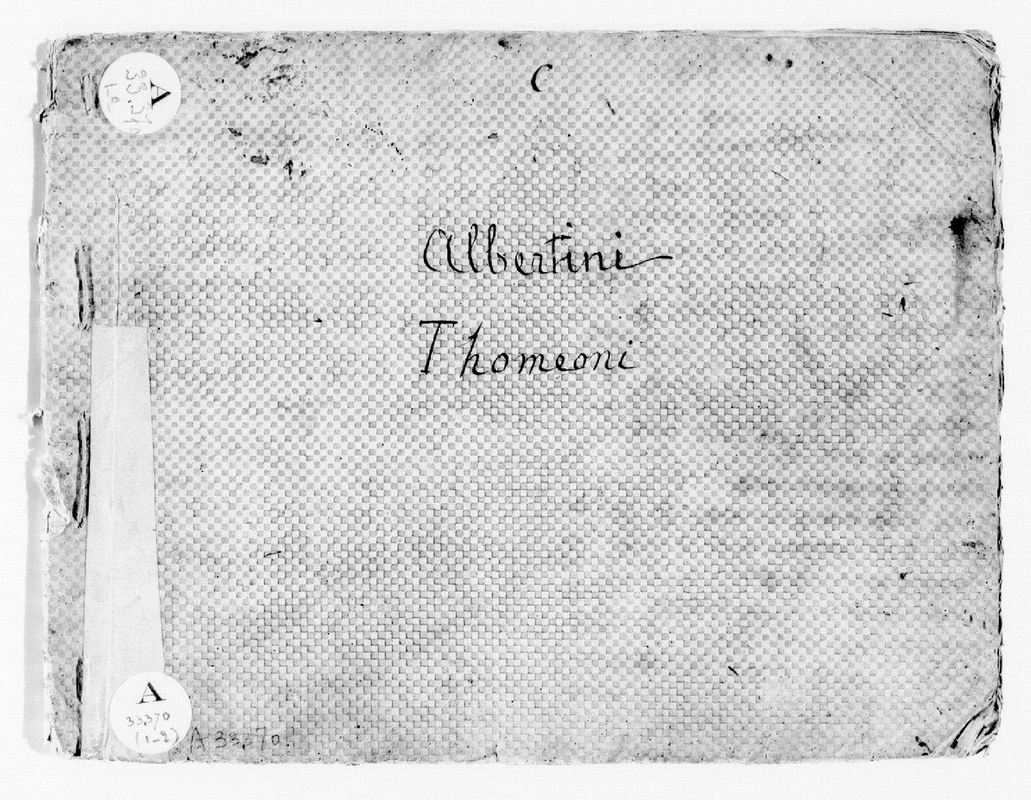 C
A
Albertini
Thomeoni
A
33370
(1-2)
A 33370